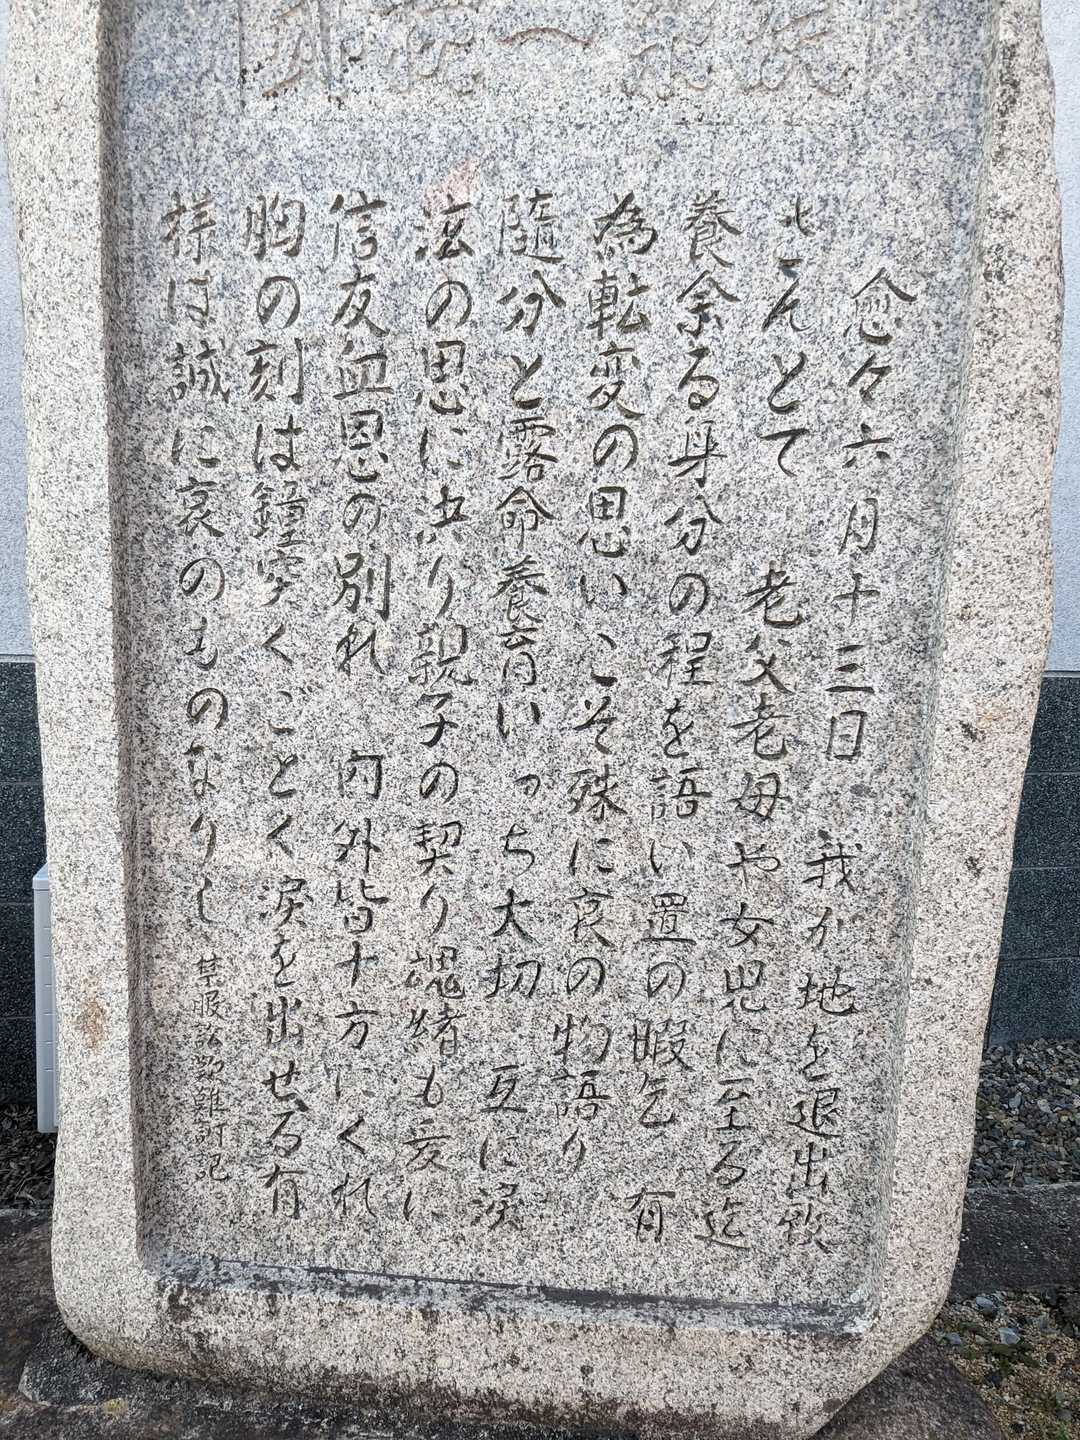 愈々六月十三日 我が地を退出致
さんとて 老父老母や女児に至る迄
養余る身分の程を語い置の暇乞 有
為転変の思いこそ殊に哀の物語り
随分と露命養育いっち大切 互に涙
法の思に決り親子の契り魂緒も友に
信友血恩の別れ 内外皆十方にくれ
胸の刻は鐘突くごとく涙を出せる有
様は誠に哀のものなりし 禁服訟歎難訂記